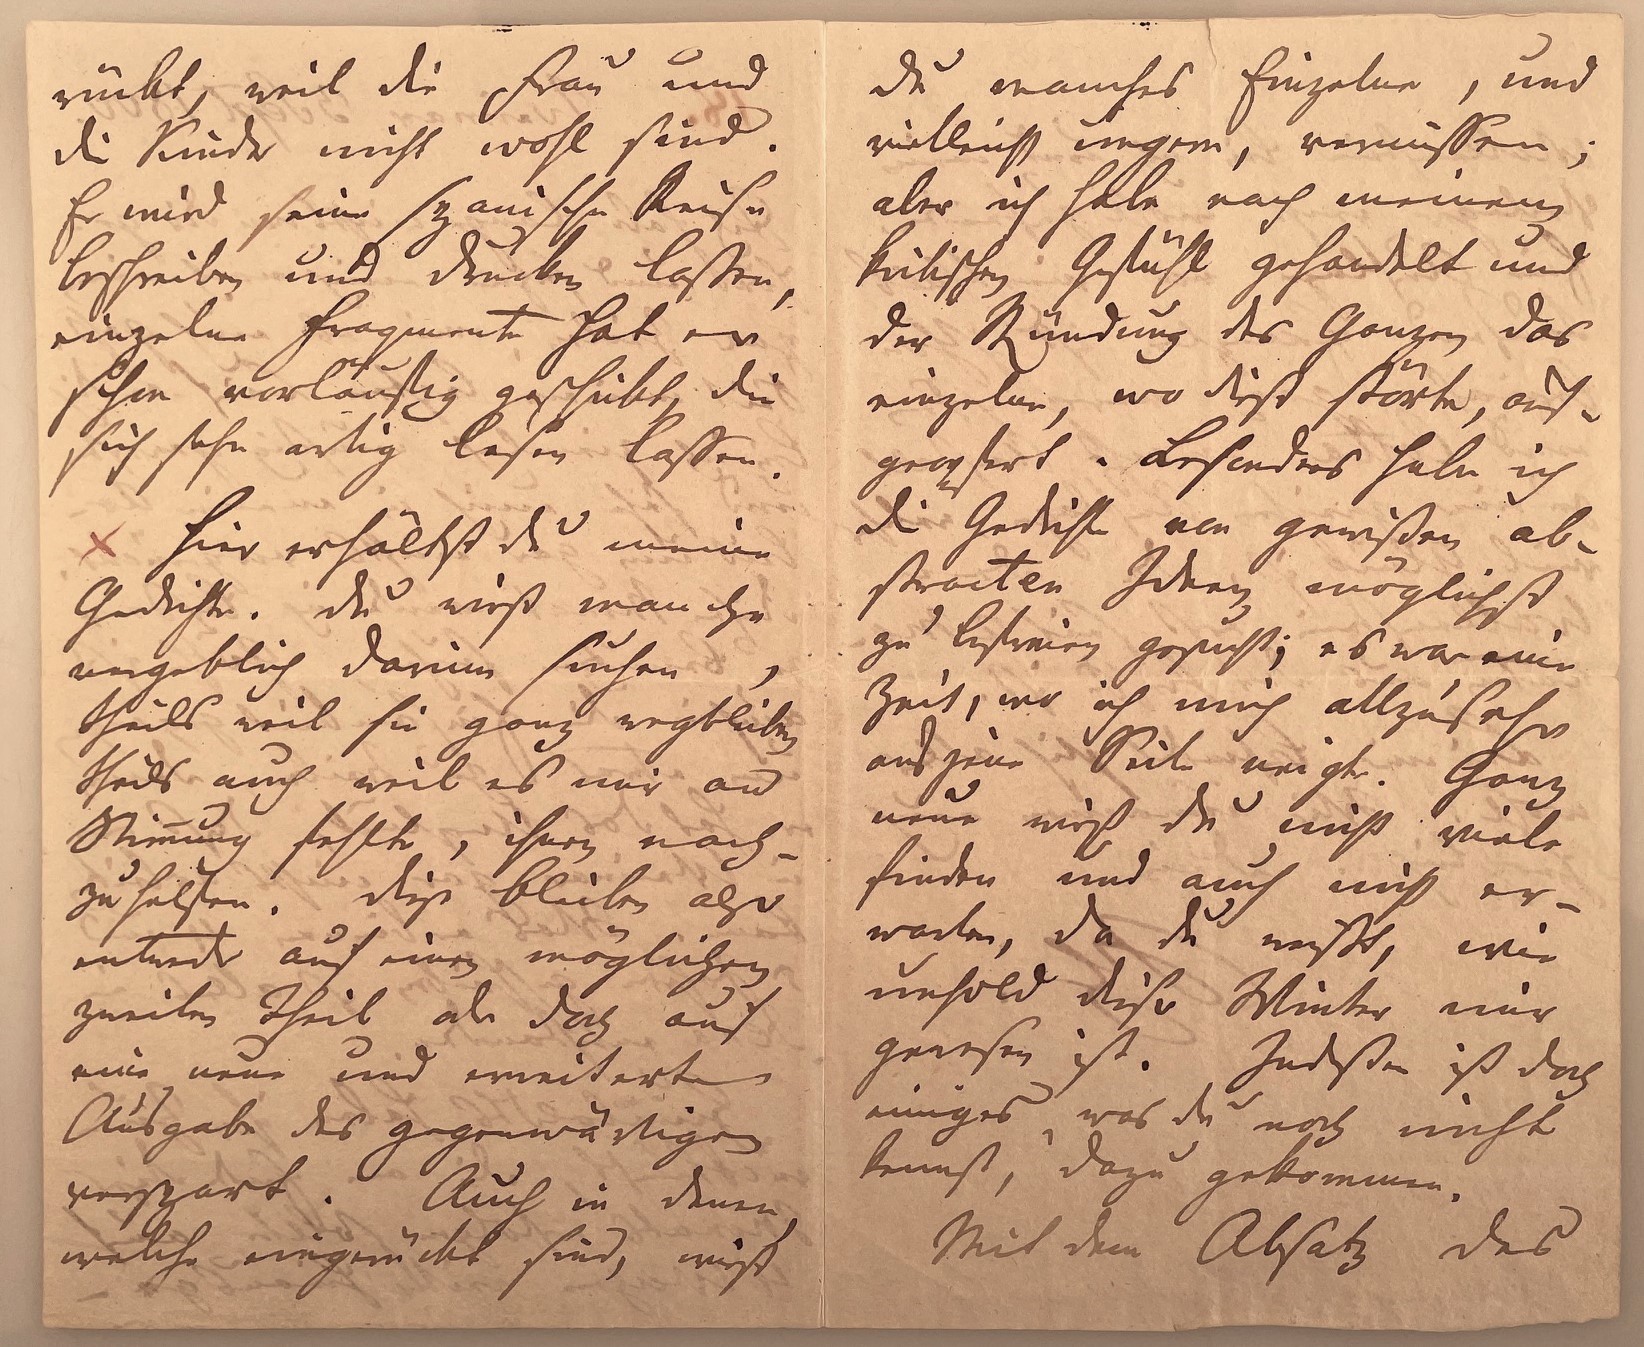 rückt, weil die Frau und
die Kinder nicht wohl sind.
Er wird seine spanische Reise
beschreiben und drucken lassen,
einzelne Fragmente hat er
schon vorläufig geschickt, die
sich sehr artig lesen lassen.
Hier erhältst du meine
Gedichte. Du wirst manche
vergeblich darinn suchen,
theils weil sie ganz wegblieben
theils auch weil es mir an
Stimmung fehlte, ihnen nach-
zuhelfen. Diese bleiben also
entweder auf einen möglichen
zweiten Theil oder doch auf
eine neue und erweiterte
Ausgabe des gegenwärtigen
verspart. Auch in denen,
welche eingerückt sind, wirst
du manches Einzelne, und
vielleicht ungern, vermissen;
aber ich habe nach meinem
kritischen Gefühl gehandelt und
der Ründung des Ganzen das
einzelne, wo dieß störte, auf-
geopfert. Besonders habe ich
die Gedichte von gewißen ab-
stracten Ideen möglichst
zu befreien gesucht; es war eine
Zeit, wo ich mich allzusehr
auf jene Seite neigte. Ganz
neue wirst du nicht viele
finden und auch nicht er-
warten, da du weißt, wie
unhold dieser Winter mir
gewesen ist. Indeßen ist doch
einiges, was du noch nicht
kennst, dazu gekommen.
Mit dem Absatz des